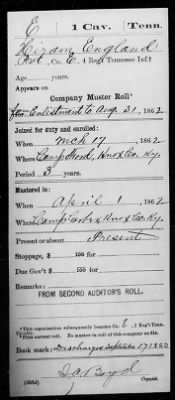 E | 1 Cav. | Tenn.
Hiram England
Pvt, Co. E, 1 Reg't Tennessee Inf.†
Age years.
Appears on
Company Muster Roll*
for Enlistment to Aug. 31, 1862
Joined for duty and enrolled:
When Mch 17, 1862
Where Camp Flood, Knox Co. Ky.
Period 3 years.
Mustered in:
When April 1, 1862
Where Camp Knox Co. Ky.
Present or absent Present
Stoppage, $ 100 for
Due Gov't $ 100 for
Remarks:
FROM SECOND AUDITOR'S ROLL.
*This organization subsequently became Co. E, 1 Reg't Tenn.
Book mark: Discharged September 17 1862
Boyd
Copyist.